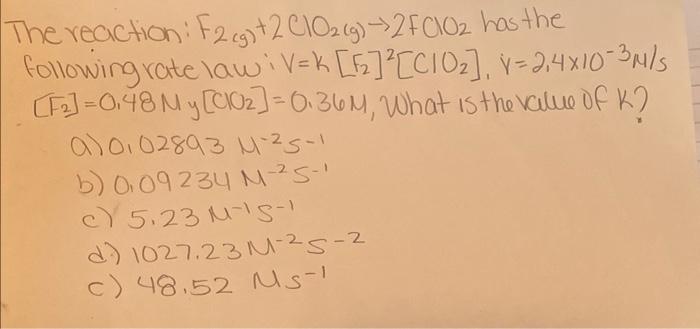 The reaction: F2(g)+2ClO2(g)→2FClO2 has the
following rate law: V=k [F2]²[ClO2], v=2,4x10-³M/s
[F2]=0,48M y [ClO2]=0.36M, What is the value of K?
a) 0,02893 M-²s-¹
b) 0,09234 M-²s-¹
c) 5.23 M-¹s-¹
d.) 1027.23 M-²s-²
c) 48.52 Ms-¹